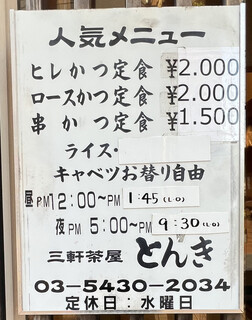 人気メニュー
ヒレかつ定食 ¥2.000
ロースかつ定食 ¥2.000
串かつ定食 ¥1.500
ライス・
キャベツお替り自由
昼PM12:00〜PM 1:45(L.O)
夜PM 5:00〜PM 9:30(L.O)
三軒茶屋 とんき
03-5430-2034
定休日:水曜日